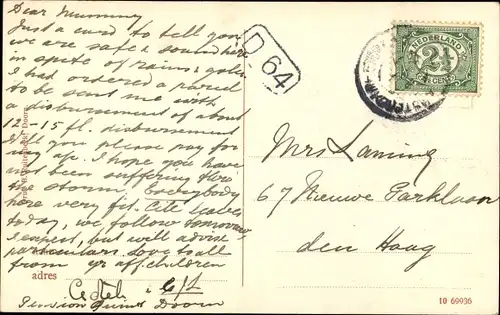 Dear Mummy
Just a card to tell you
we are safe & sound here
in spite of rain & gale.
I had ordered a parcel
to be sent me with a
disbursement of about
12-15 fl. disbursement
Will you please pay for
my a/c. I hope you have
not been suffering thro
the storm. Everybody
here very fit. leaves
today, we follow tomorrow,
I expect, but will advise
particulars. Love to all
from yr aff. children
6/2
Pension Doorn
adres
D 64
NEDERLAND
2½
CENT
AMSTERDAM
Mrs Laming
67 Nieuwe Parklaan
den Haag
10 69936